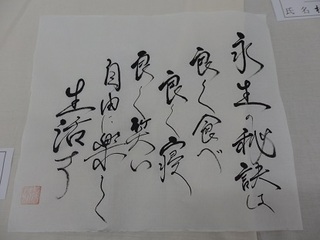 永生の秘訣は
良く食べ
良く寝
良く笑い
自由に楽しく
生活す
氏名